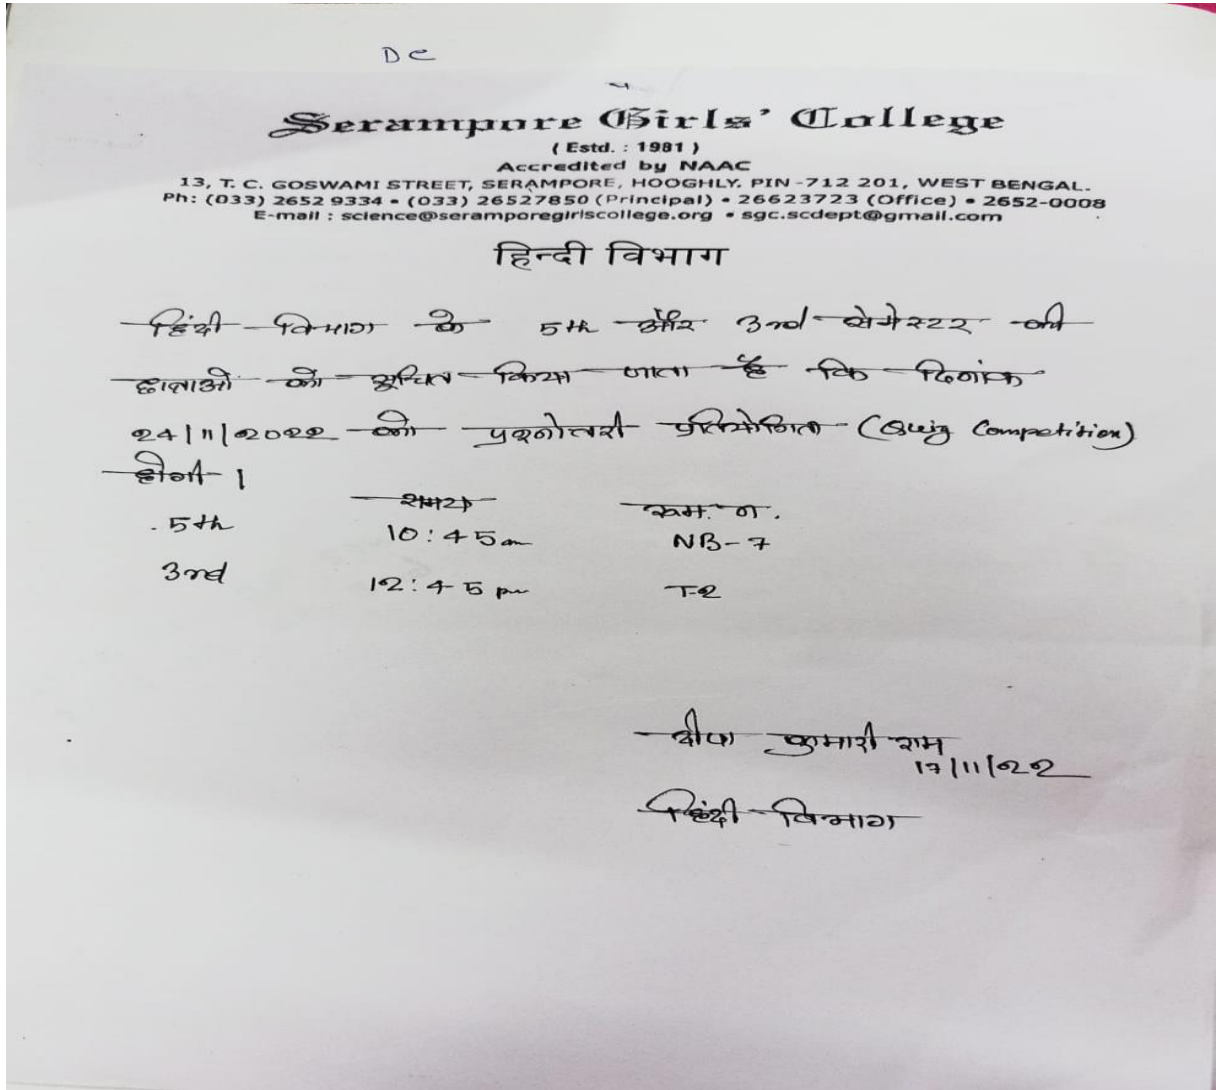 DC
Serampore Girls' College
( Estd. : 1981 )
Accredited by NAAC
13, T. C. GOSWAMI STREET, SERAMPORE, HOOGHLY. PIN -712 201, WEST BENGAL.
Ph: (033) 2652 9334 • (033) 26527850 (Principal) • 26623723 (Office) • 2652-0008
E-mail : science@seramporegirlscollege.org • sgc.scdept@gmail.com
हिन्दी विभाग
हिंदी विभाग के 5th और 3rd सेमेस्टर की
छात्राओं को सूचित किया जाता है कि दिनांक
24/11/2022 को प्रश्नोत्तरी प्रतियोगिता (Quiz Competition)
होगी।
समय रूम. न.
5th 10:45am NB-7
3rd 12:45 pm T-2
दीपा कुमारी राम
17/11/22
हिंदी विभाग